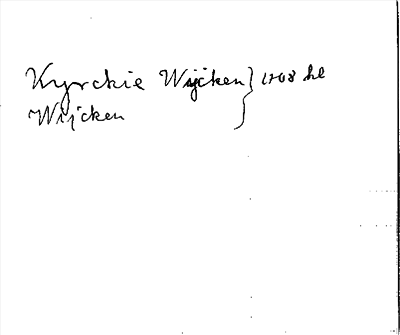 Kyrckie Wijcken } 1708 hl
Wijcken